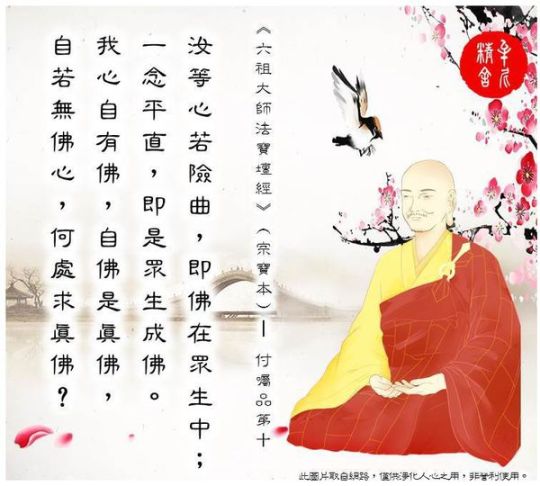 《六祖大師法寶壇經》（宗寶本）— 付囑品第十
汝等心若險曲，即佛在眾生中；
一念平直，即是眾生成佛。
我心自有佛，自佛是真佛，
自若無佛心，何處求真佛？
精舍
此圖片取自網路，僅供淨化人心之用，非營利使用。